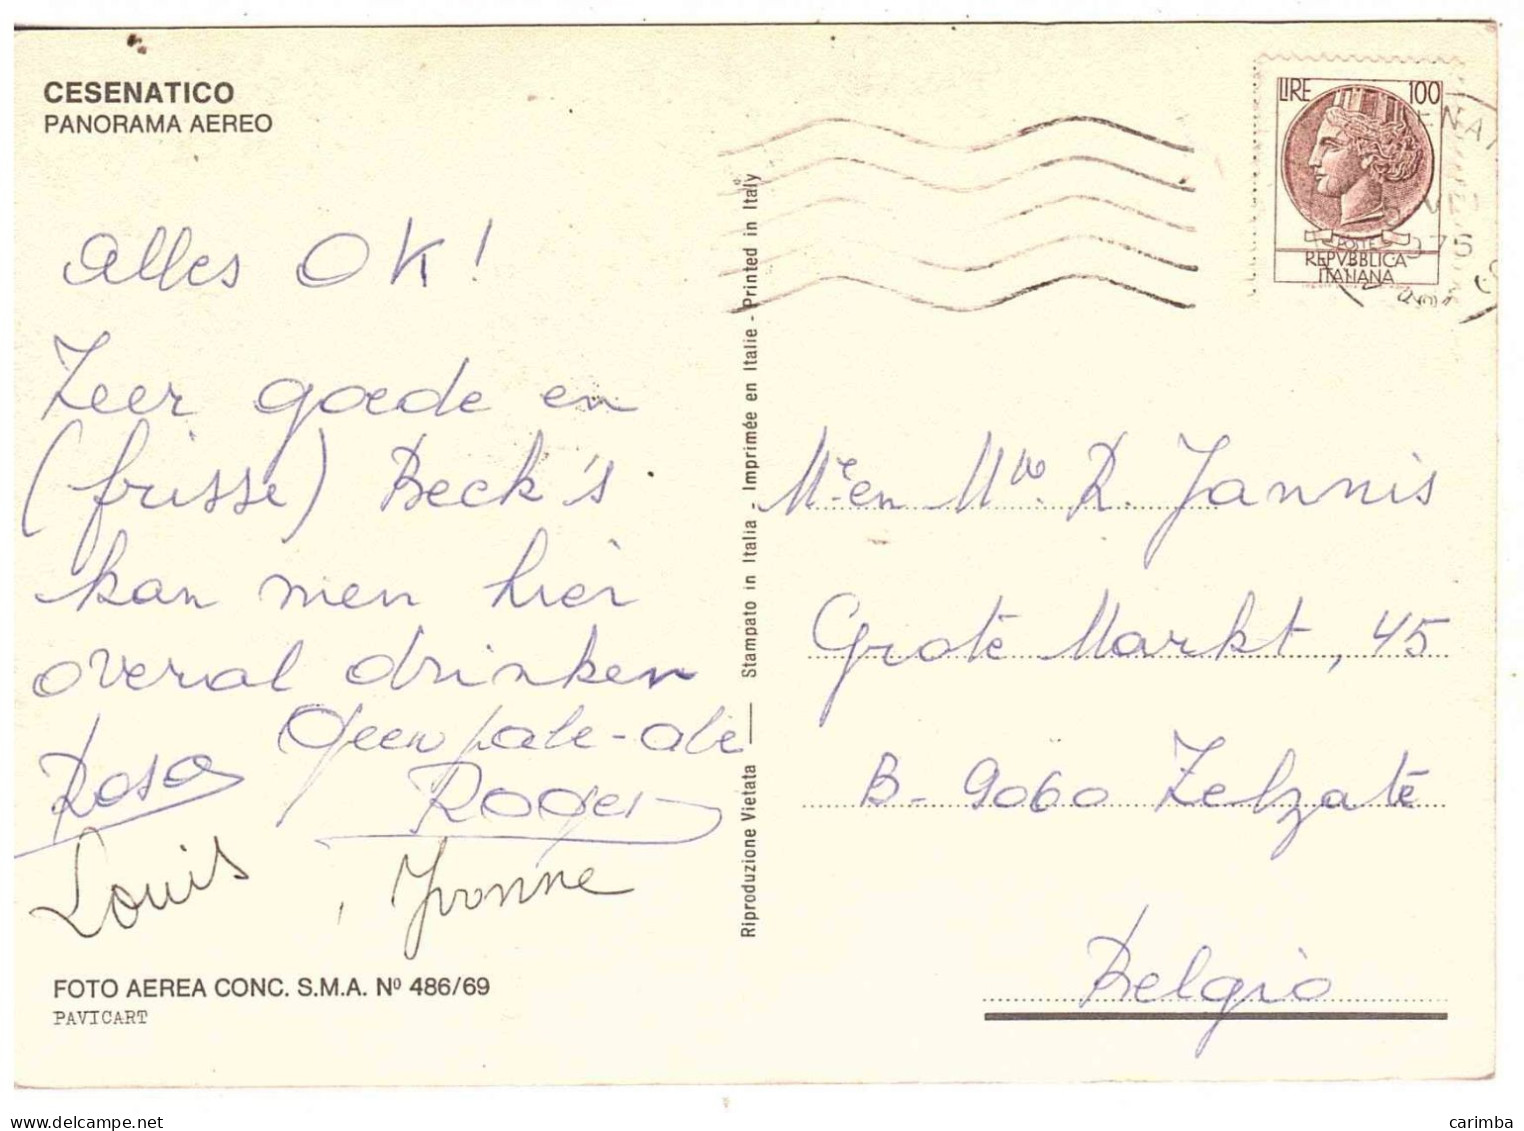 CESENATICO
PANORAMA AEREO
Alles OK!
Zeer goede en
(frisse) Beck's
kan men hier
overal drinken
Geen pale-ale
Rosa
Roger
Louis, Yvonne
FOTO AEREA CONC. S.M.A. Nº 486/69
PAVICART
Riproduzione Vietata — Stampato in Italia - Imprimée en Italie - Printed in Italy
LIRE 100
POSTE
REPVBBLICA
ITALIANA
975
Mr en Mve. R. Jannis
Grote Markt, 45
B-9060 Zelzate
Belgio
carimba